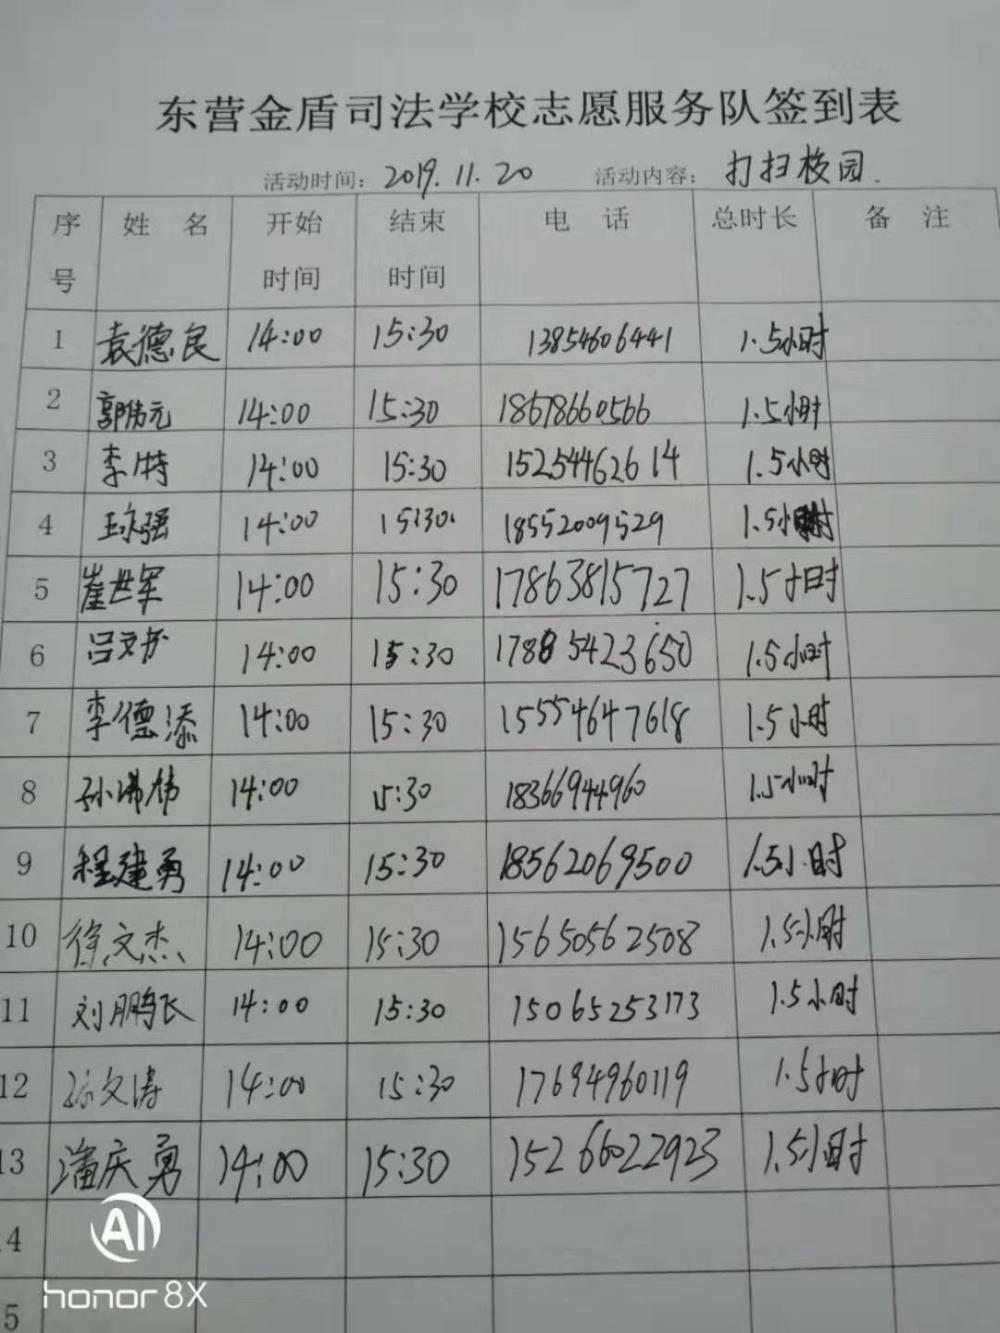 东营金盾司法学校志愿服务队签到表
活动时间：2019.11.20 活动内容：打扫校园.
序号 姓名 开始时间 结束时间 电话 总时长 备注
1 袁德良 14:00 15:30 13854606441 1.5小时
2 郭伟元 14:00 15:30 18678660566 1.5小时
3 李 14:00 15:30 15254462614 1.5小时
4 王强 14:00 15:30. 18552009529 1.5小时
5 崔世军 14:00 15:30 17863815727 1.5小时
6 吕文 14:00 15:30 1.5小时
7 李德添 14:00 15:30 15554647618 1.5小时
8 孙伟 14:00 15:30 18366944960 1.5小时
9 程建勇 14:00 15:30 18562069500 1.5小时
10 徐文杰 14:00 15:30 15650562508 1.5小时
11 刘鹏飞 14:00 15:30 15065253173 1.5小时
12 孙文涛 14:00 15:30 17694960119 1.5小时
13 潘庆勇 14:00 15:30 15266022923 1.5小时
4
5
AI
honor 8X